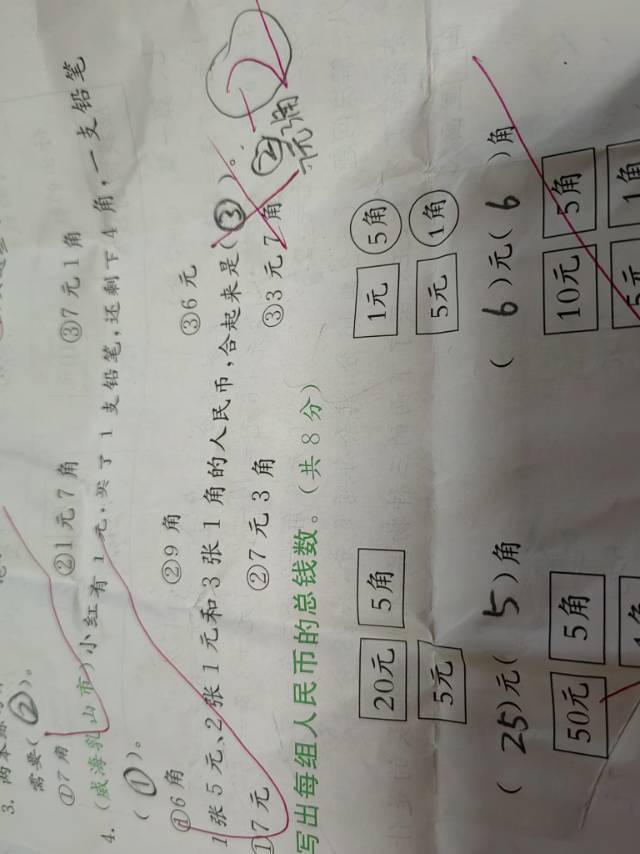 3.
需要(②)。
①7角 ②1元7角 ③7元1角
4. (威海乳山市)小红有1元,买了1支铅笔,还剩下4角,一支铅笔
(①)。
①6角 ②9角 ③6元
1张5元、2张1元和3张1角的人民币,合起来是(③)。
①7元 ②7元3角 ③3元7角 ②
写出每组人民币的总钱数。(共8分)
20元 5角 1元 5角
5元 5元 1角
(25)元(5)角 (6)元(6)角
50元 5角 10元 5角
1角 5元 1角